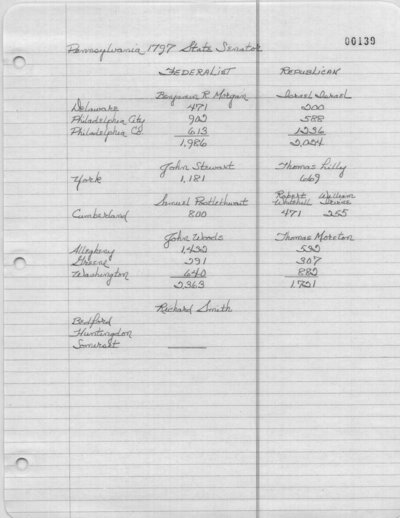 00139
Pennsylvania 1797 State Senator
FEDERALIST REPUBLICAN
Benjamin R Morgan Israel Israel
Delaware 471 200
Philadelphia City 902 588
Philadelphia Co. 613 1236
1,986 2,024
John Stewart Thomas Lilly
York 1,181 669
Samuel Postlethwait Robert Whitehill William Irvine
Cumberland 800 471 255
John Woods Thomas Moreton
Allegheny 1,432 532
Greene 291 307
Washington 640 882
2,363 1,721
Richard Smith
Bedford
Huntingdon
Somerset